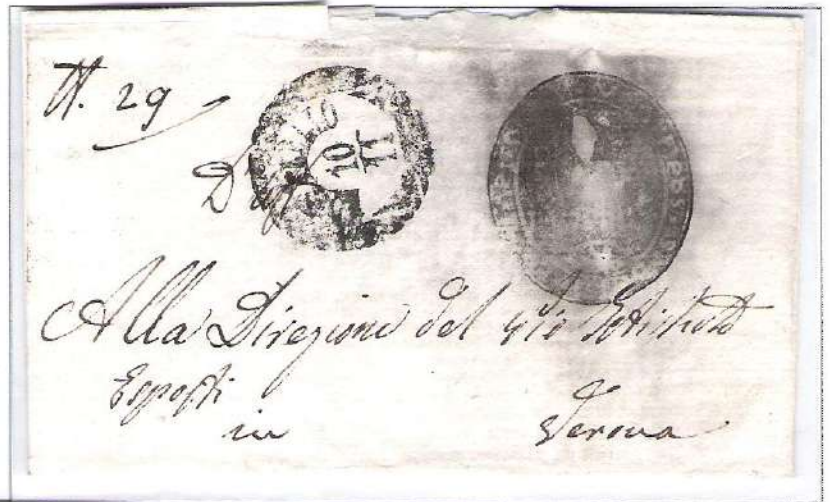 N. 29
10
11
Alla Direzione del Pio Istituto
Esposti
in Verona